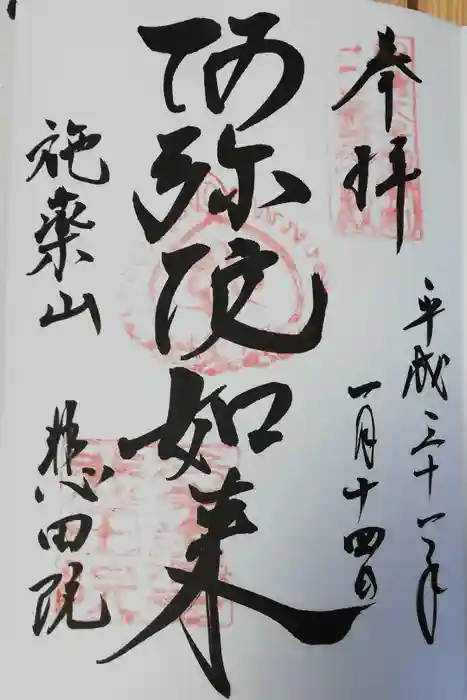 奉拝
平成三十一年
一月十四日
阿弥陀如来
施薬山 悲田院